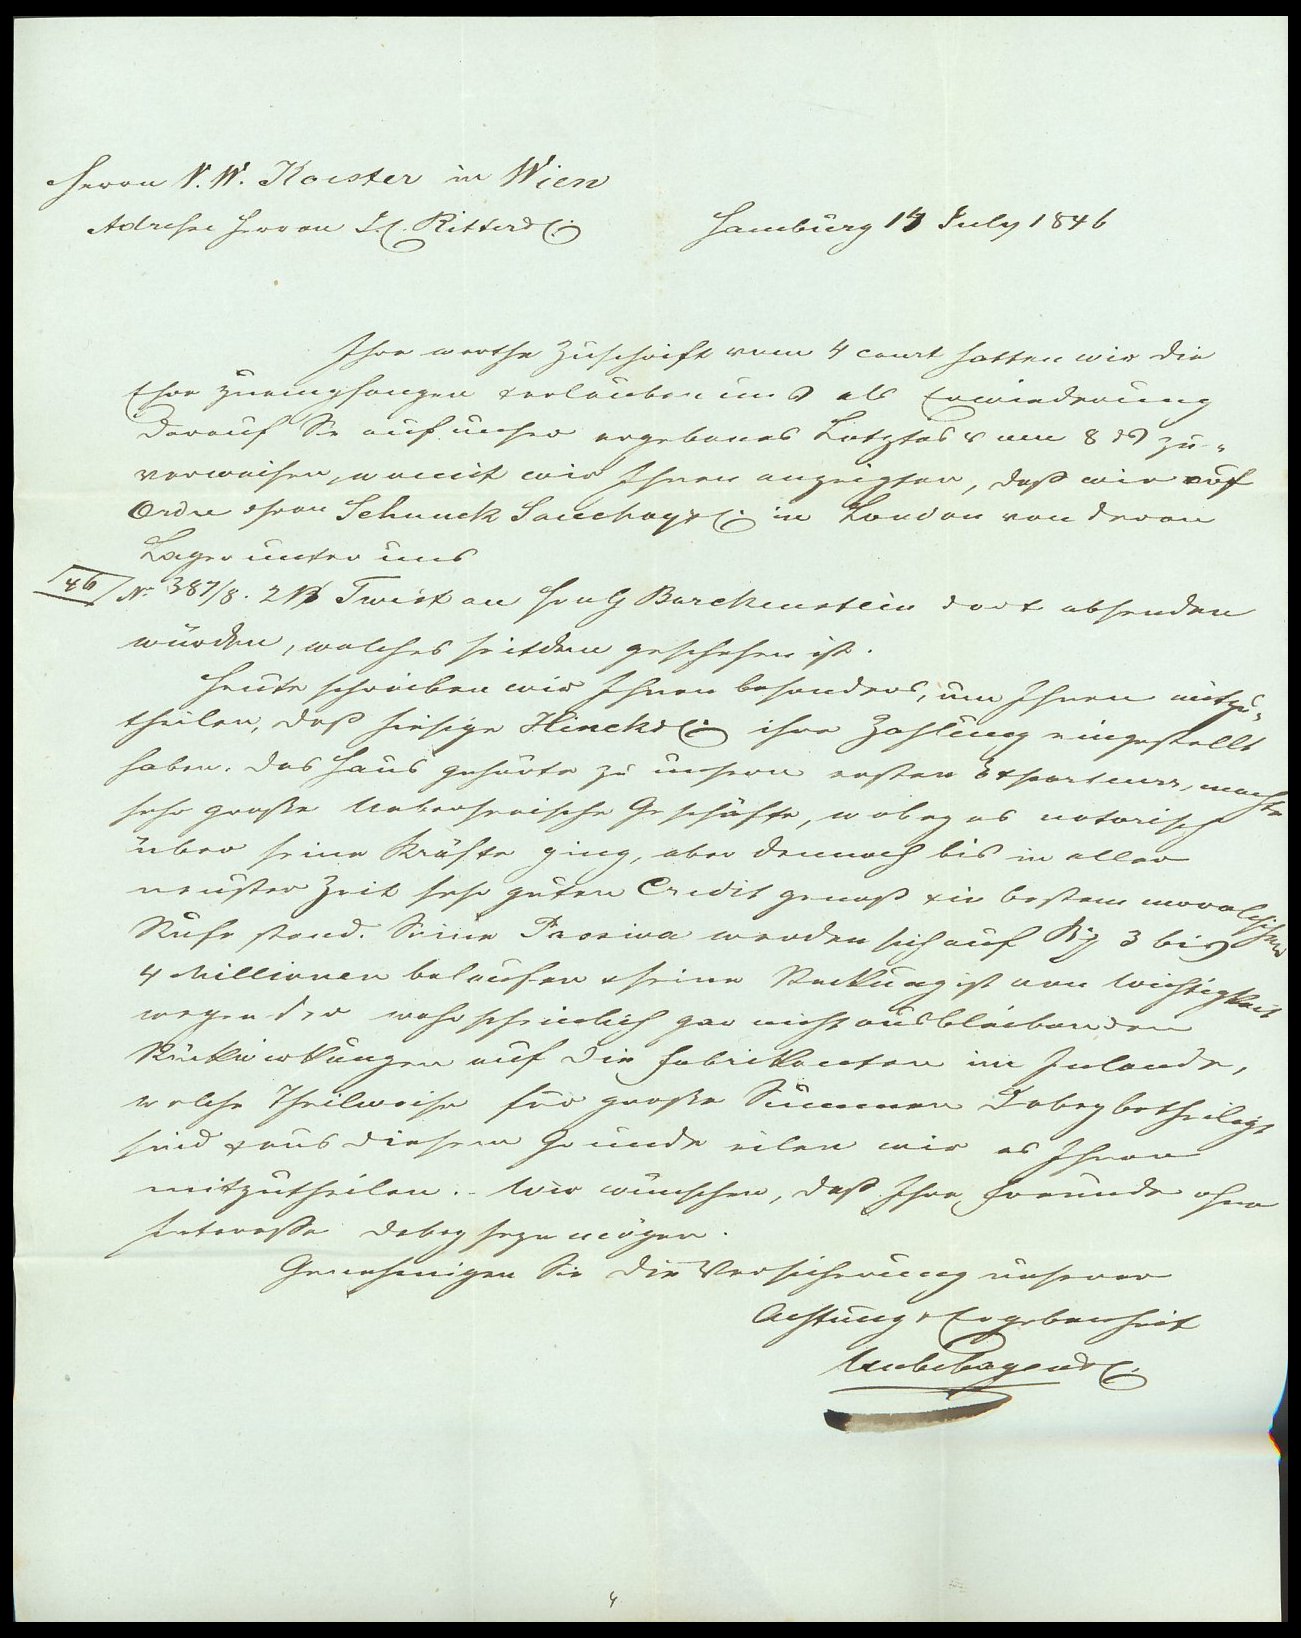 Herrn N. W. Koester in Wien
Adresse Herren Ritter & C.
Hamburg 14 July 1846
Ihre werthe Zuschrift vom 4 court hatten wir die
Ehre zu empfangen & erlauben uns als Erwiederung
darauf Sie auf unser ergebenes Letztes vom 8 ds zu-
verweisen, womit wir Ihnen anzeigten, daß wir auf
Ordre Hrren Schunck Souchay & C. in London von deren
Lager unter uns
46 No 387/8. 2 Twist an Hrn G Borckenstein dort absenden
würden, welches seitdem geschehen ist.
Heute schreiben wir Ihnen besonders, um Ihnen mitzu-
theilen, daß hiesige Hinck & C. ihre Zahlung eingestellt
haben. Das Haus gehörte zu unsern ersten Exporteurs, machte
sehr große Ueberseeische Geschäfte, wobey es notorisch
über seine Kräfte ging, aber dennoch bis in aller
neuster Zeit sehr guten Credit genoß & in bestem moralischen
Rufe stand. Seine Passiva werden sich auf 3 bis
4 Millionen belaufen & seine Stockung ist von Wichtigkeit
wegen der wahrscheinlich gar nicht ausbleibenden
Rückwirkungen auf die Fabrikanten im Inlande,
welche Theilweise für große Summen dabey betheiligt
sind & aus diesem Grunde eilen wir es Ihnen
mitzutheilen. Wir wünschen, daß Ihre Freunde ohne
Interesse dabey seyn mögen.
Genehmigen Sie die Versicherung unserer
Achtung & Ergebenheit
Rubebagen & C.